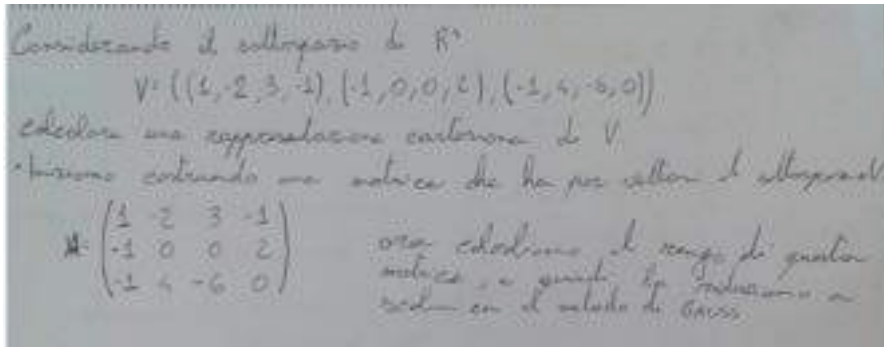 Considerando il sottospazio di R⁴
V=((1,-2,3,-1),(-1,0,0,2),(-1,4,-6,0))
calcolare una rappresentazione cartesiana di V
iniziamo costruendo una matrice che ha per vettori il sottospazio V
(1 -2 3 -1)
(-1 0 0 2)
(-1 4 -6 0)
ora calcoliamo il rango di questa
matrice, e quindi la riduciamo a
con il metodo di GAUSS